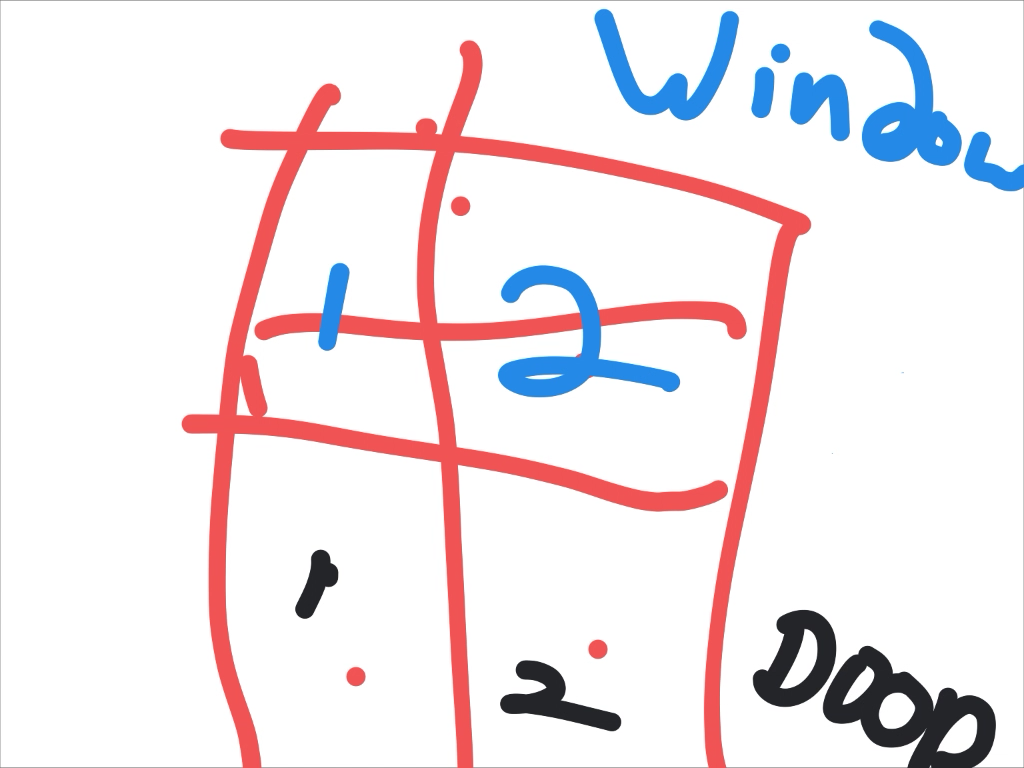 Window
1 2
1
2
Door